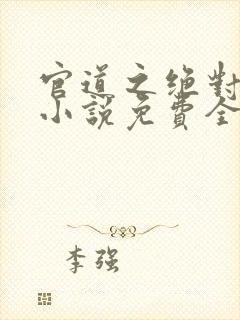 官道之绝對
小說免費全
李强